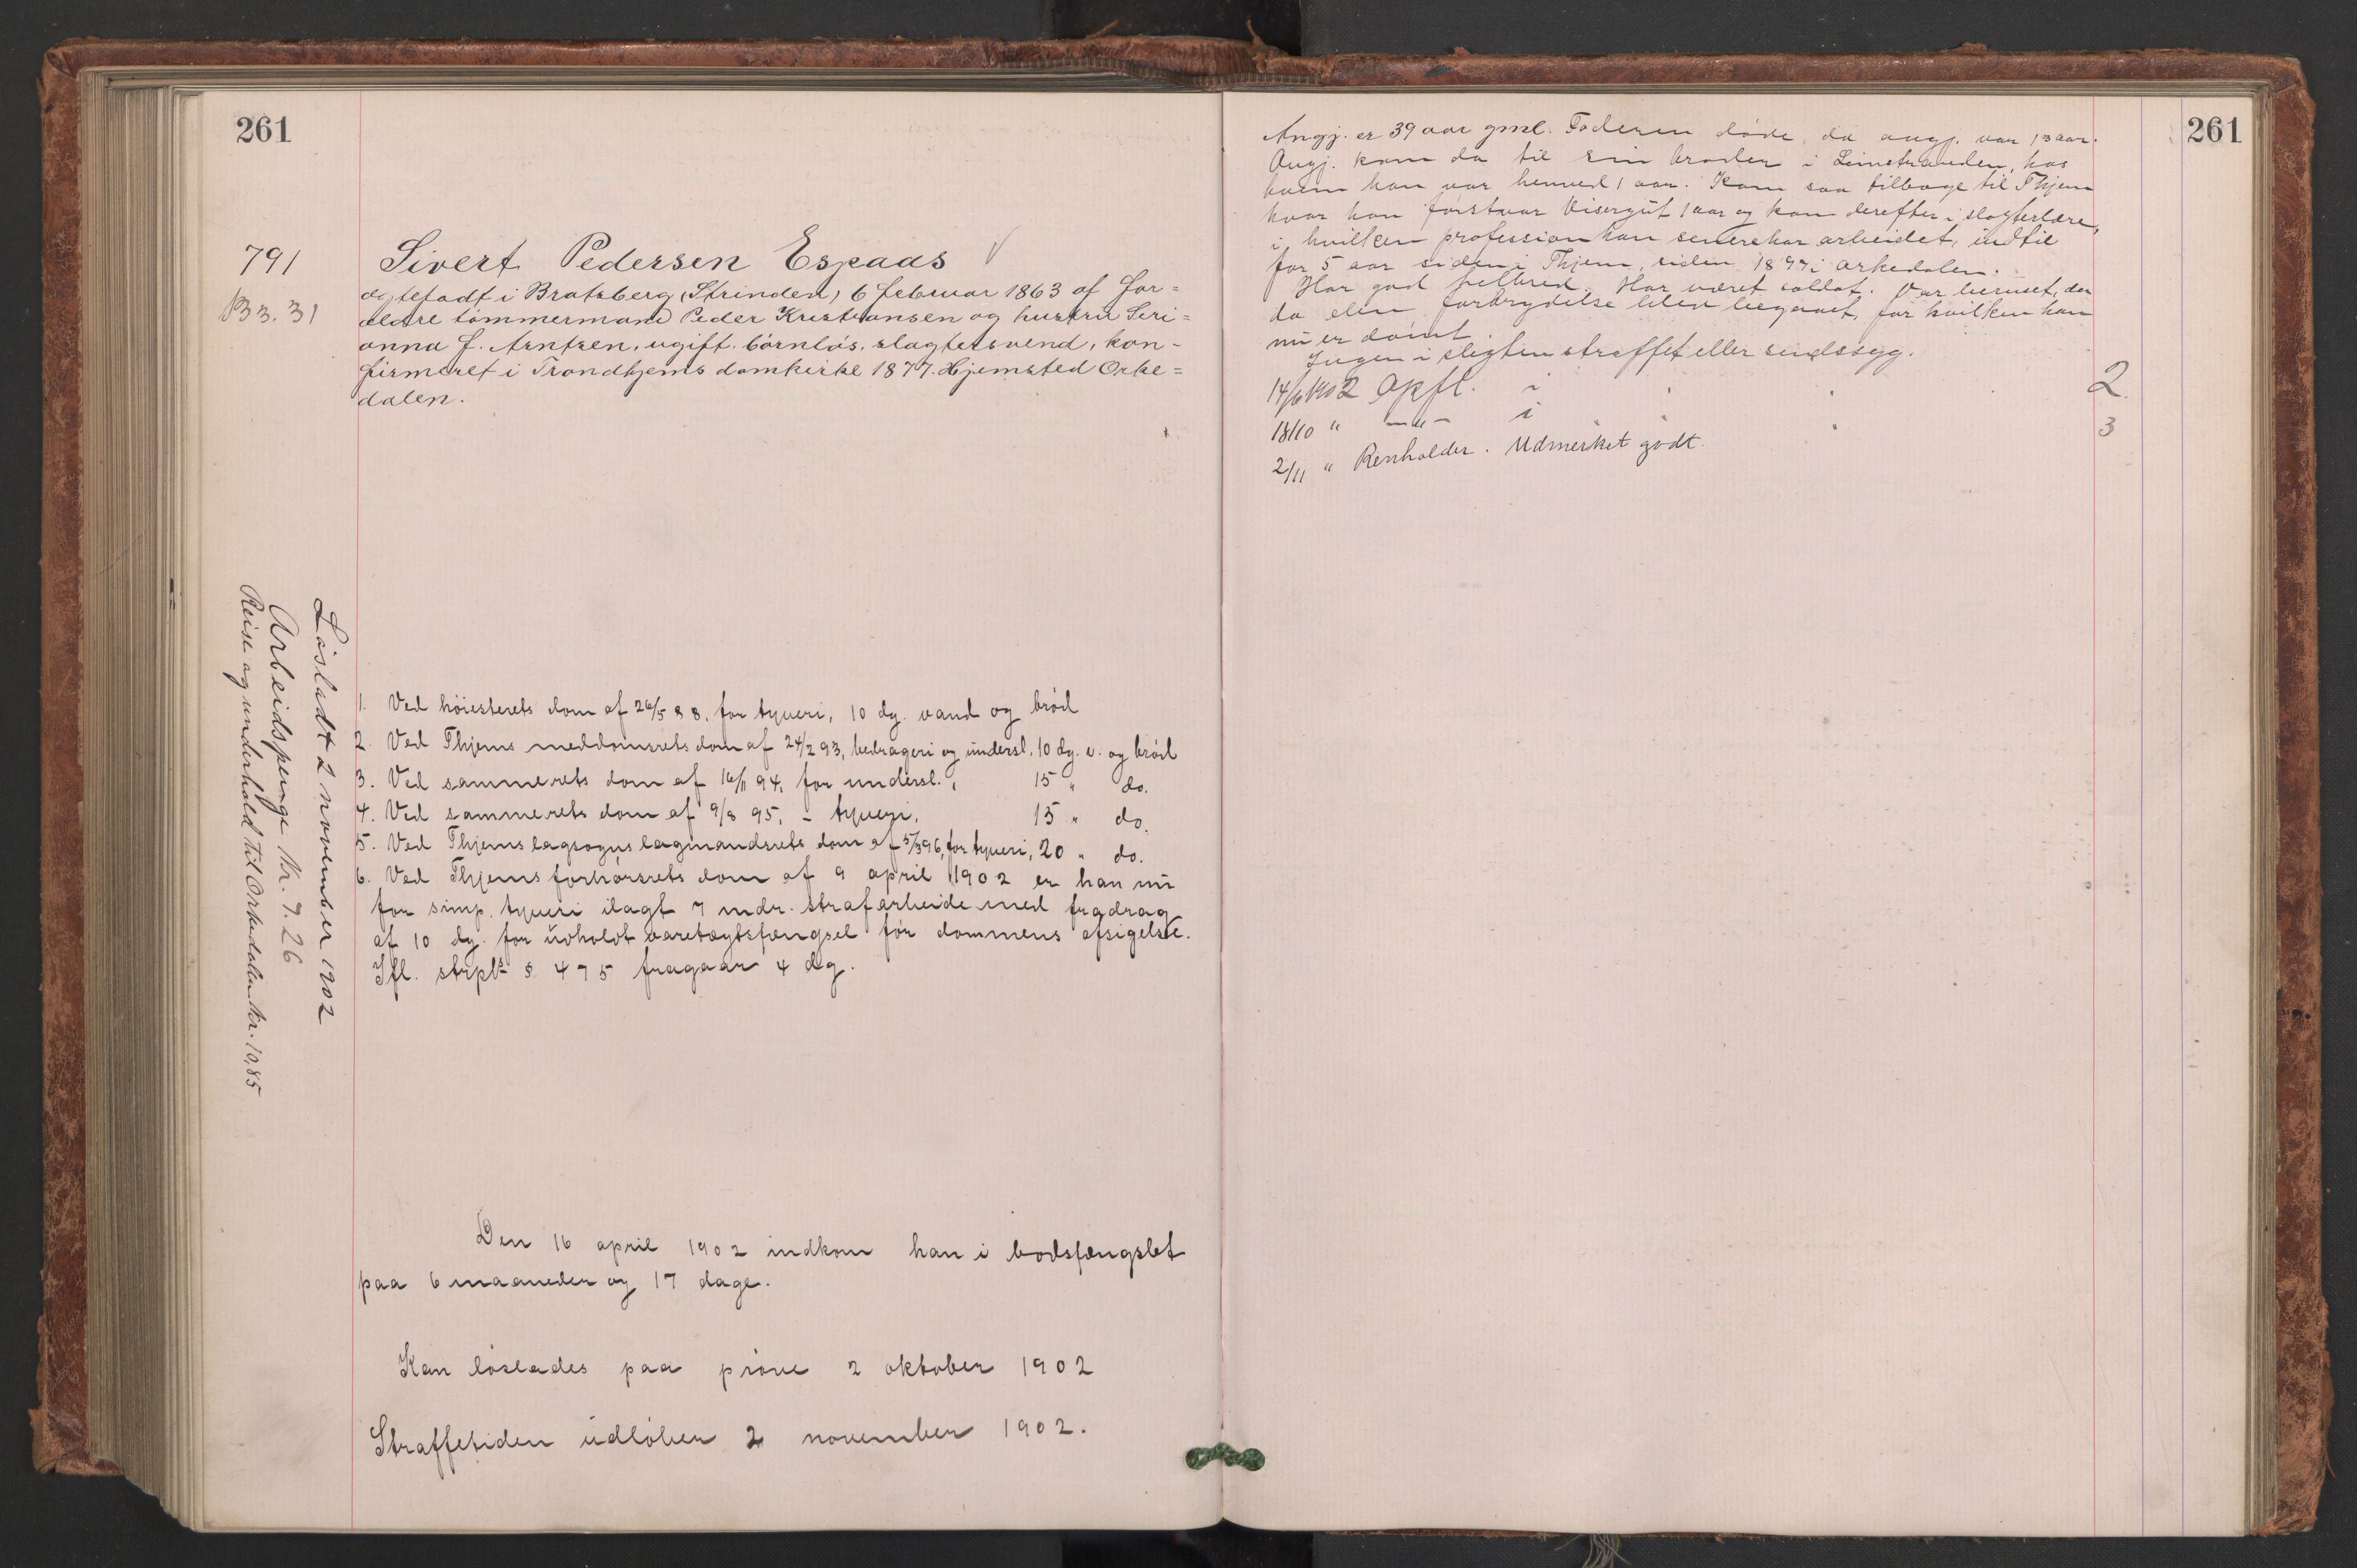 261
791
B 3. 31
Sivert Pedersen Espaas
ægtefødt i Bratsberg (Strinden) 6 februar 1863 af for=
ældre tømmermand Peder Kristiansen og hustru Seri=
anna f. Arntzen, ugift. børnløs, slagtersvend, kon-
firmeret i Trondhjems domkirke 1877. Hjemsted Orke=
dalen.
1. Ved høiesterets dom af 26/5 88, for tyveri, 10 dg. vand og brød
2. Ved Thjems meddomsrets dom af 24/2 93, bedrageri og undersl. 10 dg. v. og brød
3. Ved sammerets dom af 16/11 94, for undersl., 15 " do.
4. Ved sammerets dom af 9/8 95, - tyveri, 15 " do.
5. Ved Thjems lagsogns lagmandsrets dom af 5/3 96, for tyveri, 20 " do.
6. Ved Thjems forhørsrets dom af 9 april 1902 er han nu
for simp. tyveri ilagt 7 mdr. strafarbeide med fradrag
af 10 dg. for udholdt varetægtsfængsel før dommens afsigelse.
Ifl. strpl. § 475 fragaar 4 dg.
Den 16 april 1902 indkom han i bodsfængslet
paa 6 maaneder og 17 dage.
Kan løslades paa prøve 2 oktober 1902
Straffetiden udløber 2 november 1902.
Løsladt 2 november 1902
Arbeidspenge Kr. 7.26
Reise og underhold til Orkedalen kr. 10,85
261
Angj. er 39 aar gml. Faderen døde, da angj. var 13 aar.
Angj. kom da til sin broder i Leinstranden, hos
hvem han var henved 1 aar. Kom saa tilbage til Thjem
hvor han først var Visergut 1 aar og kom derefter i slagterlære,
i hvilken profession han senere har arbeidet, indtil
for 5 aar siden i Thjem, siden 1897 i Orkedalen.
Har god helbred. Har været soldat. Var beruset, da
da den forbrydelse blev begaaet, for hvilken han
nu er dømt.
Ingen i slegten straffet eller sindssyg.
14/6 1902 Opfl. i 2.
18/10 " -"- i 3
2/11 " Renholder. Udmerket godt.